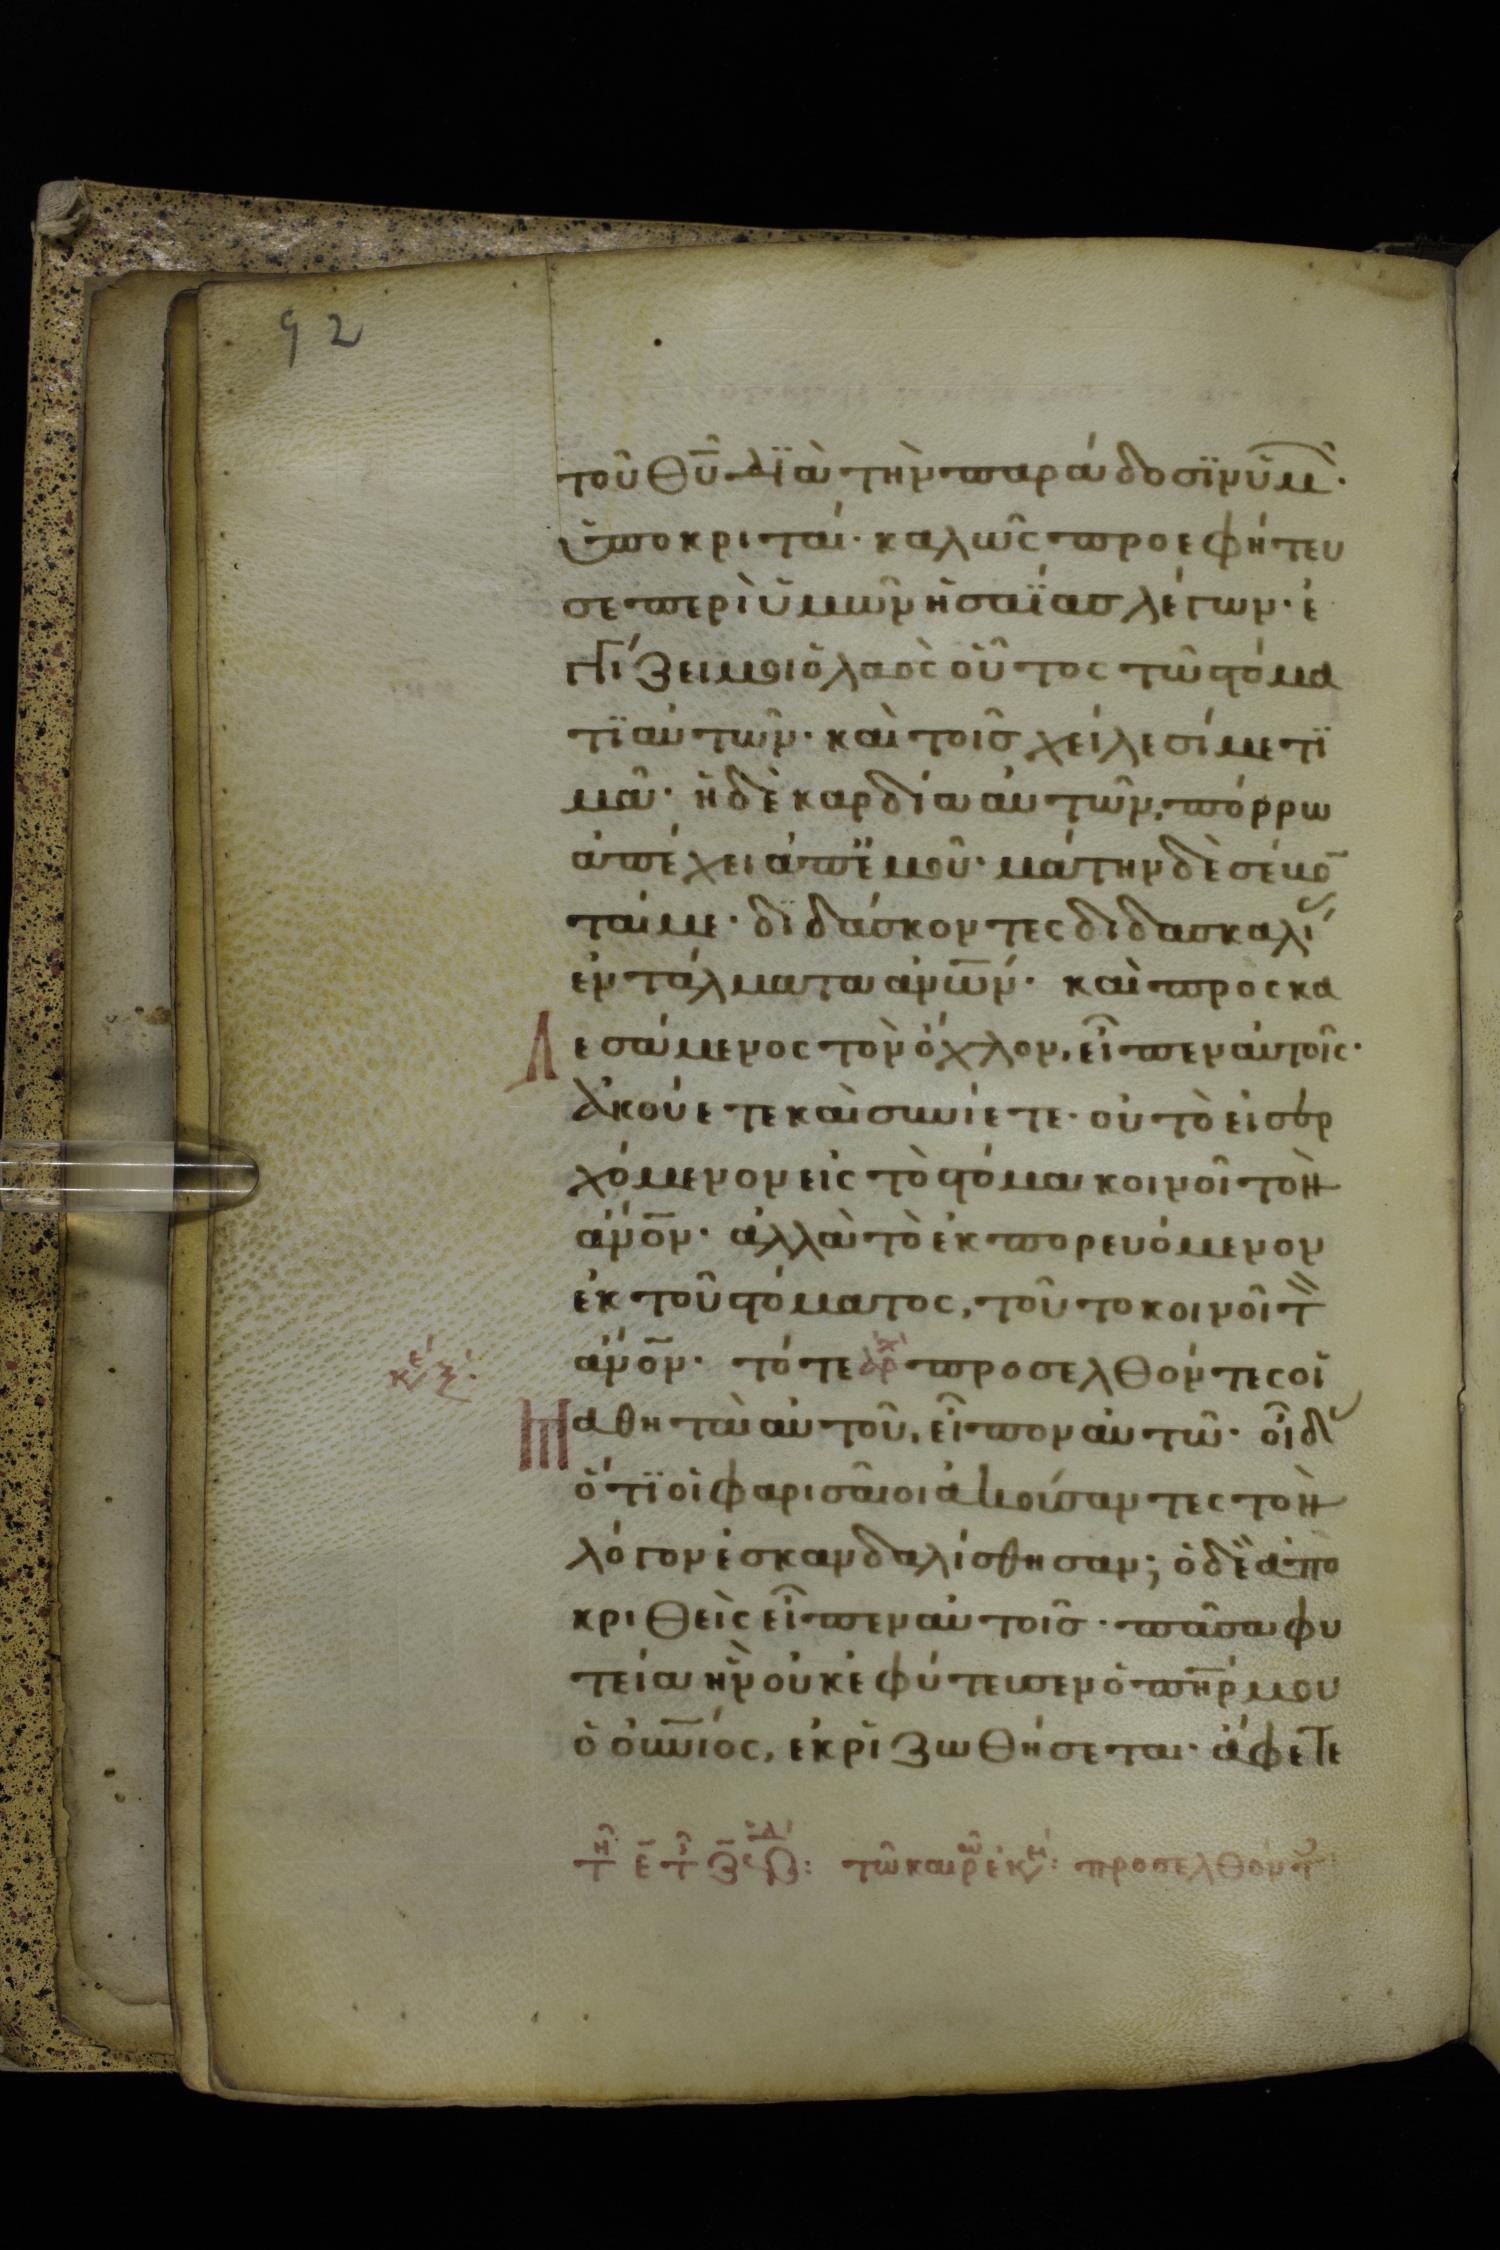 92
τοῦ θ̅υ̅ διὰ τὴν παράδοσϊν ὑμ̅·
ὑποκριταί· καλῶς προεφήτευ
σε περὶ ὑμῶν ἡσαΐας λέγων· ἐ
γγίζει μοι ὁ λαὸς οὗτος τῶ στόμα
τϊ αὐτῶν· καὶ τοῖς χείλεσί με τϊ
μᾶ· ἡ δὲ καρδία αὐτῶν, πόρρω
ἀπέχει ἀπ' ἐμοῦ· μάτην δὲ σέβο̅
ταί με· δϊδάσκοντες διδασκαλί
ἐντάλματα ἀν̅ω̅ν· καὶ προσκα
λεσάμενος τὸν ὄχλον, εἶπεν αὐτοῖς·
Ἀκούετε καὶ συνίετε· οὐ τὸ εἰσερ
χόμενον εἰς τὸ στόμα κοινοῖ τὸν
ἄν̅ο̅ν· ἀλλὰ τὸ ἐκπορευόμενον
ἐκ τοῦ στόματος, τοῦτο κοινοῖ τ
ἄν̅ο̅ν· τότε ἀρχ προσελθόντες οἱ
μαθηταὶ αὐτοῦ, εἶπον αὐτῶ· οἶδ
ὅτϊ οἱ φαρισαῖοι ἀκούσαντες τὸν
λόγον ἐσκανδαλίσθησαν; ὁ δὲ ἀπο
κριθεὶς εἶπεν αὐτοῖς· πᾶσα φυ
τεία ἣν οὐκ ἐφύτευσεν ὁ π̅η̅ρ μου
ὁ οὐ̅νιός, ἐκριζωθήσεται· ἄφετε
τῶ καιρῶ ἐκεί: προσελθόντ